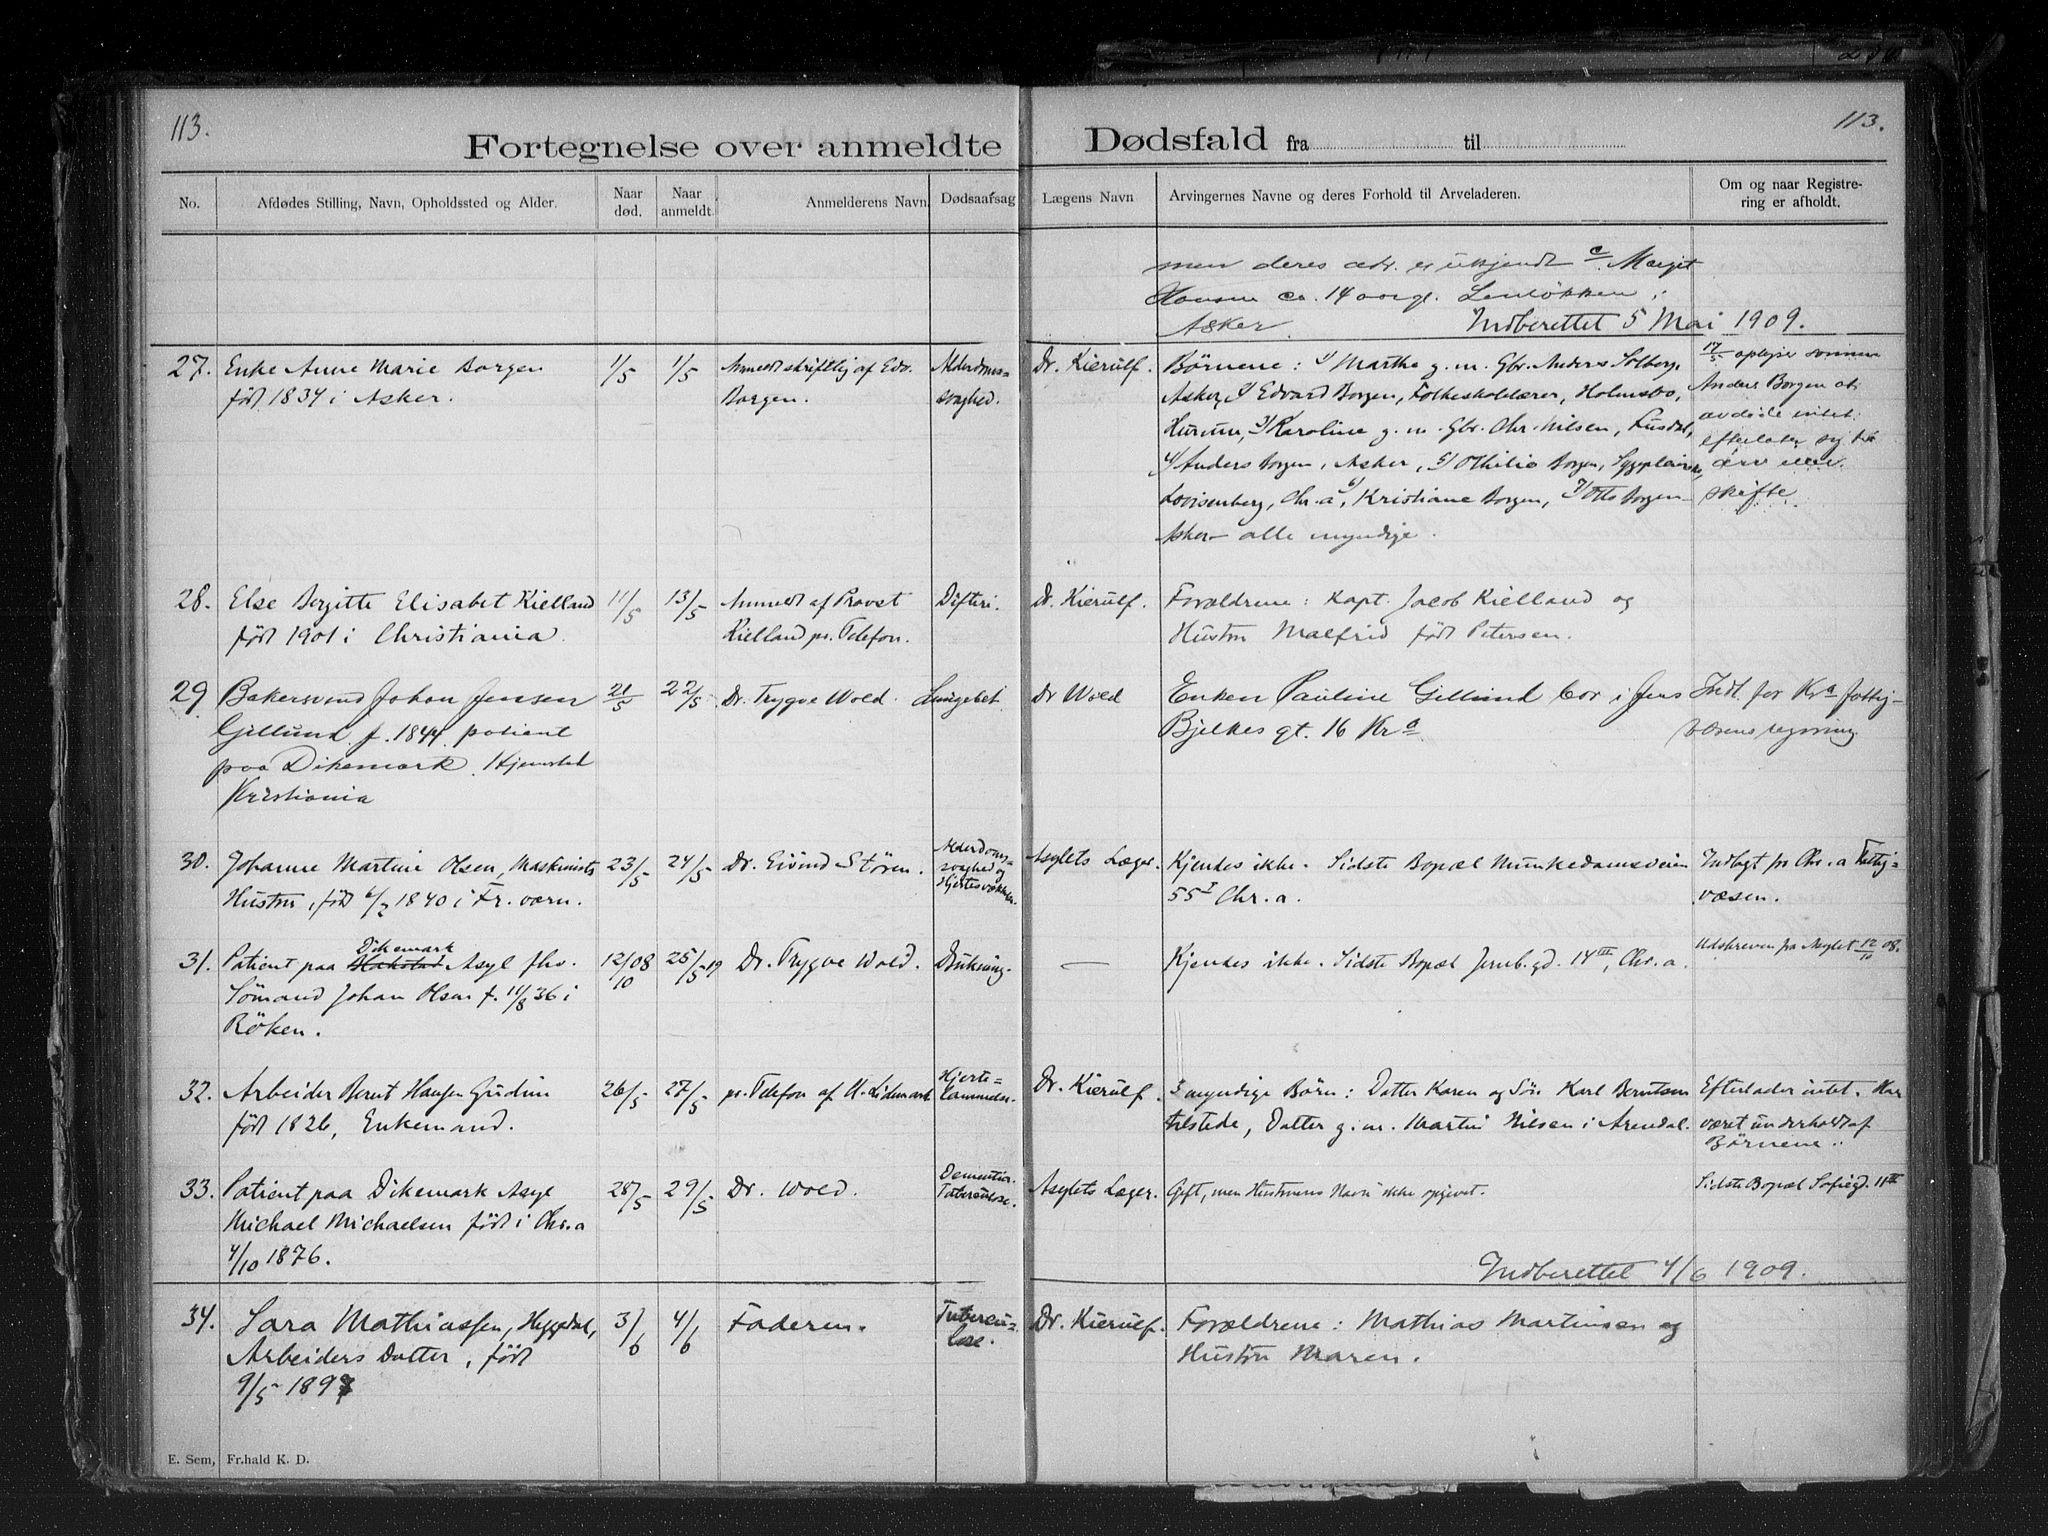 113.
113.
Fortegnelse over anmeldte Dødsfald fra til
No.
Afdødes Stilling, Navn, Opholdssted og Alder.
Naar død.
Naar anmeldt.
Anmelderens Navn
Dødsaarsag
Lægens Navn
Arvingernes Navne og deres Forhold til Arveladeren.
Om og naar Registre-
ring er afholdt.
men deres adr. er ukjendt c. Marget
Hansen ca. 14 aar gl.
Asker. Indberettet 5 Mai 1909.
27. Enke Anne Marie Borgen
født 1834 i Asker.
1/5
1/5
Anmeldt skriftlig af Edv.
Borgen.
Alderdoms-
svaghed.
Dr. Kierulf.
Børnene: 1/ Marthe g. m. Gbr. Anders Solberg,
Asker, 2/ Edvard Borgen, Folkeskolelærer, Holmsbo,
Hurum, 3/ Karoline g. m. Gbr. Chr. Nilsen, Fusdal,
4/ Anders Borgen, Asker, 5/ Othilie Borgen, Sygepleierske,
Lovisenberg, Chr.a, 6/ Kristiane Borgen, 7/ Otto Borgen
Asker - alle myndige.
17/5 oplyser sønnen
Anders Borgen at
avdøde intet
efterlater sig til
arv eller
skifte.
28. Else Birgitte Elisabet Kielland
født 1901 i Christiania.
11/5
13/5
Anmeldt af Provst
Kielland pr. Telefon.
Difteri.
Dr. Kierulf.
Forældrene: Kapt. Jacob Kielland og
Hustru Malfrid født Petersen.
29 Bakersvend Johan Jensen
Gillund f. 1844 patient
paa Dikemark. Hjemsted
Kristiania
21/5
22/5
Dr. Trygve Wold.
Lungebet.
Dr Wold
Enken Pauline Gillund bor i Jens
Bjelkes gt. 16 Kr a
Indl. for Kr a Fattig-
væsens regning
30. Johanne Martine Olsen, Maskinists
Hustru, født 6/2 1840 i Fr. værn.
23/5
24/5
Dr. Eivind Stören.
Alderdoms-
svaghed og
Hjertesvækkelse.
Asylets Læger.
Kjendes ikke. Sidste Bopæl Munkedamsveien
55 I Chr. a.
Indlagt pr Chr. a Fattig-
væsen.
31. Patient paa Hakstad Dikemark Asyl fhv.
Sömand Johan Olsen f. 11/8 36 i
Röken.
12/10 08
25/5 19
Dr. Trygve Wold.
Drukning.
—
Kjendes ikke. Sidste Bopæl Jernb. gd. 14 III, Chr. a.
Udskreven fra Asylet 12/10 08.
32. Arbeider Bernt Hansen Gudim
født 1826, Enkemand.
26/5
27/5
pr. Telefon af
Hjerte-
lammelse.
Dr. Kierulf.
3 myndige Børn: Datter Karen og Søn Karl Berntsen
tilstede, Datter g. m. Martin Nilsen i Arendal.
Efterlader intet. Har
været underholdt af
Børnene.
33. Patient paa Dikemark Asyl
Michael Michaelsen født i Chr. a
4/10 1876.
28/5
29/5
Dr. Wold.
Dementia.
Tuberculose.
Asylets Læger.
Gift, men Hustruens Navn ikke opgivet.
Sidste Bopæl Sofiegd. 11 III
Indberettet 4/6 1909.
34. Sara Mathiassen, Heggedal,
Arbeiders Datter, født
9/5 1897
3/6
4/6
Faderen.
Tubercu-
lose.
Dr. Kierulf.
Forældrene: Mathias Martinsen og
Hustru Maren.
E. Sem, Fr.hald K. D.